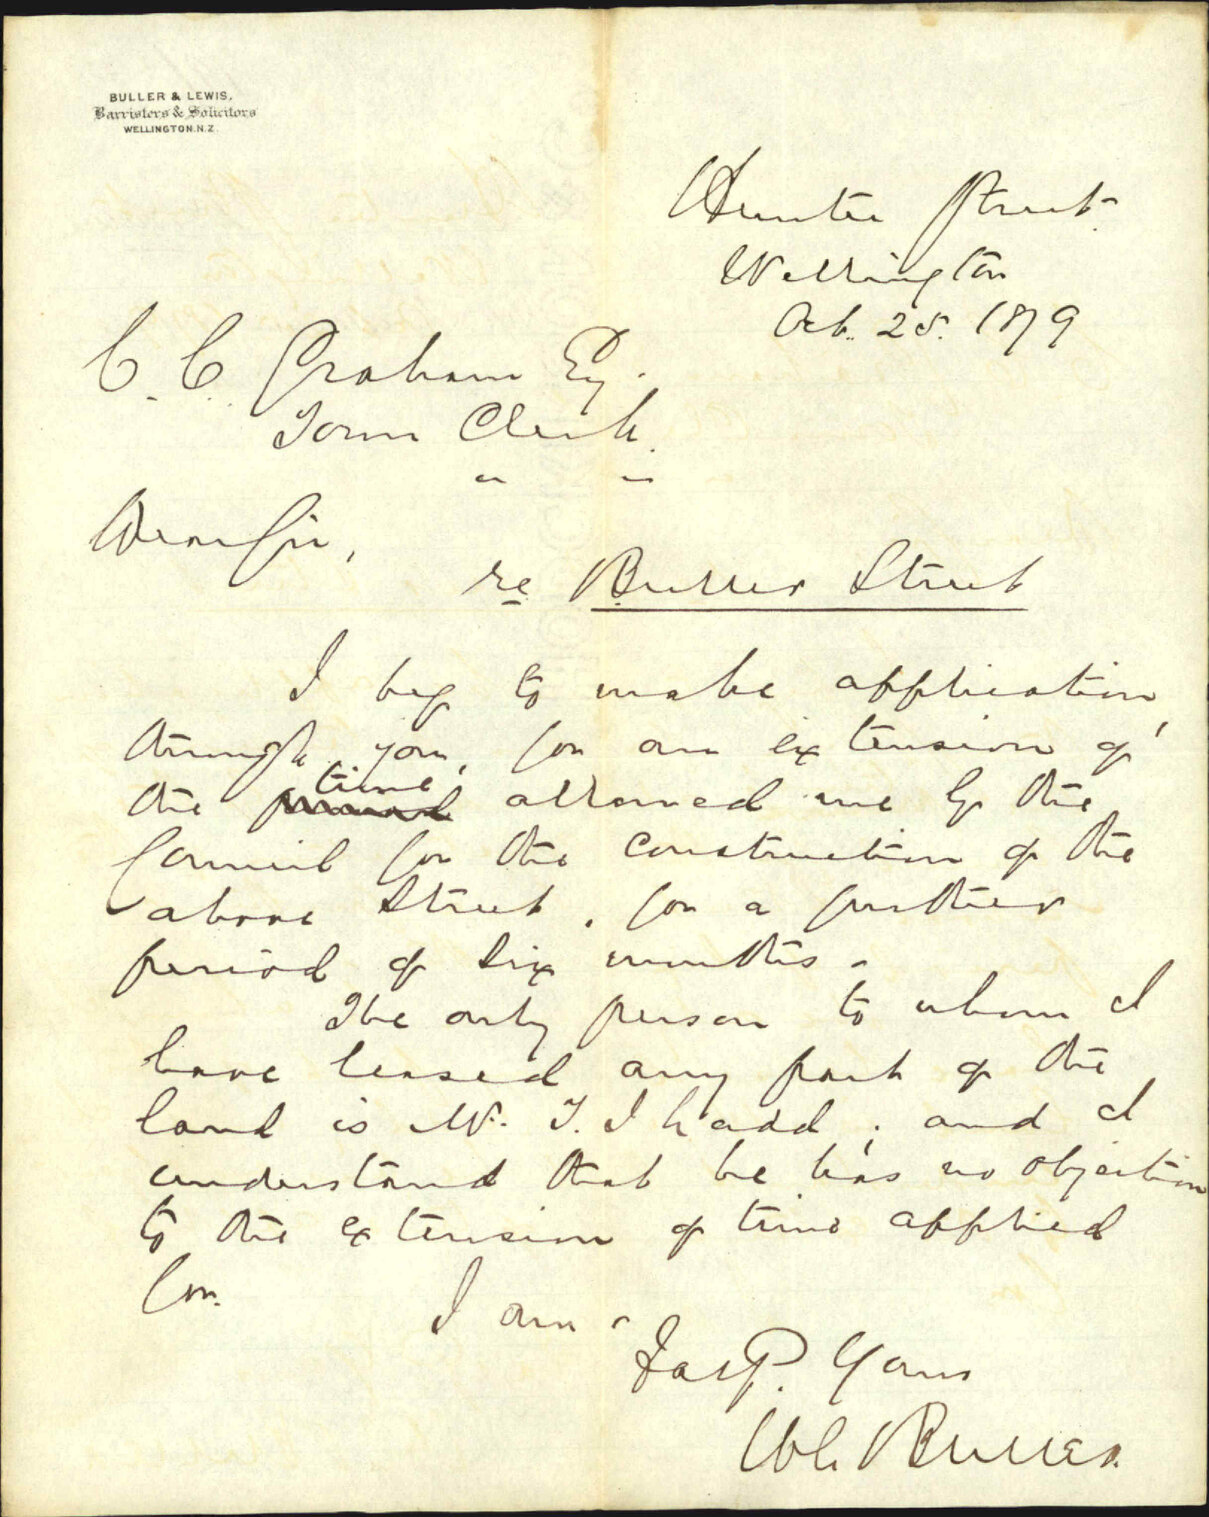 BULLER & LEWIS,
Barristers & Solicitors
WELLINGTON. N.Z.
Hunter Street
Wellington
Oct. 25. 1879
C. C. Graham Esq.
Town Clerk.
Dear Sir,
re Buller Street
I beg to make application,
through you, for an extension of
time
the period allowed me by the
Council for the construction of the
above Street, for a further
period of six months.
The only person to whom I
have leased any part of the
land is Mr. T. J. Ladd; and I
understand that he has no objection
to the extension of time applied
for.
I am
Yours
Buller.